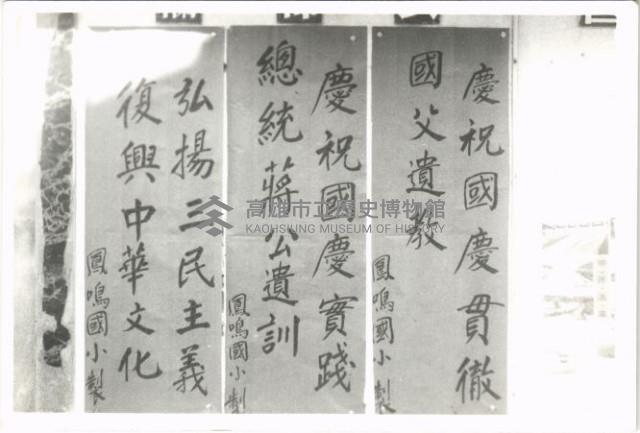 慶祝國慶貫徹
國父遺教
鳳鳴國小製
慶祝國慶實踐
總統蔣公遺訓
鳳鳴國小製
弘揚三民主義
復興中華文化
鳳鳴國小製
高雄市立歷史博物館
KAOHSIUNG MUSEUM OF HISTORY